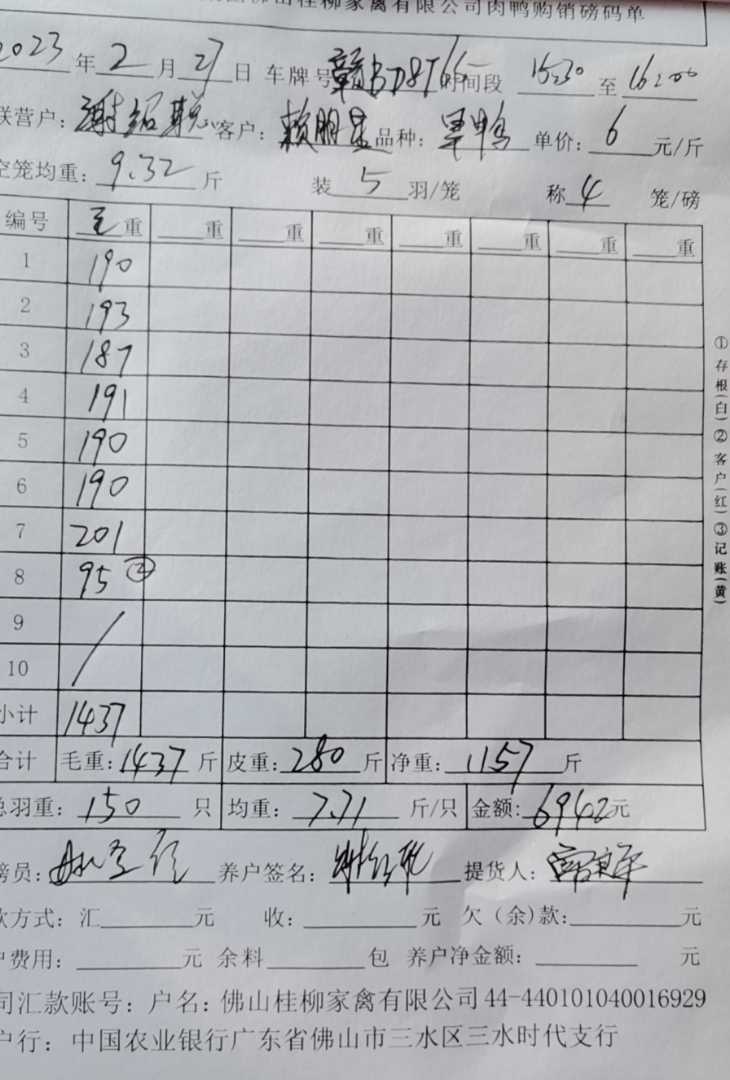 佛山桂柳家禽有限公司肉鸭购销磅码单
2023年2月27日 车牌号 时间段 15:30 至 16:00
联营户: 客户: 赖朋 品种: 单价: 6 元/斤
空笼均重: 9.32 斤 装 5 羽/笼 称 4 笼/磅
编号 毛重 重 重 重 重 重 重 重
1 190
2 193
3 187
4 191
5 190
6 190
7 201
8 95 ②
9
10
小计 1437
合计 毛重: 1437 斤 皮重: 280 斤 净重: 1157 斤
总羽重: 150 只 均重: 7.71 斤/只 金额: 6942元
磅员: 养户签名: 提货人:
款方式: 汇 元 收: 元 欠(余)款: 元
户费用: 元 余料 包 养户净金额: 元
司汇款账号: 户名: 佛山桂柳家禽有限公司 44-440101040016929
户行: 中国农业银行广东省佛山市三水区三水时代支行
①存根(白)②客户(红)③记账(黄)